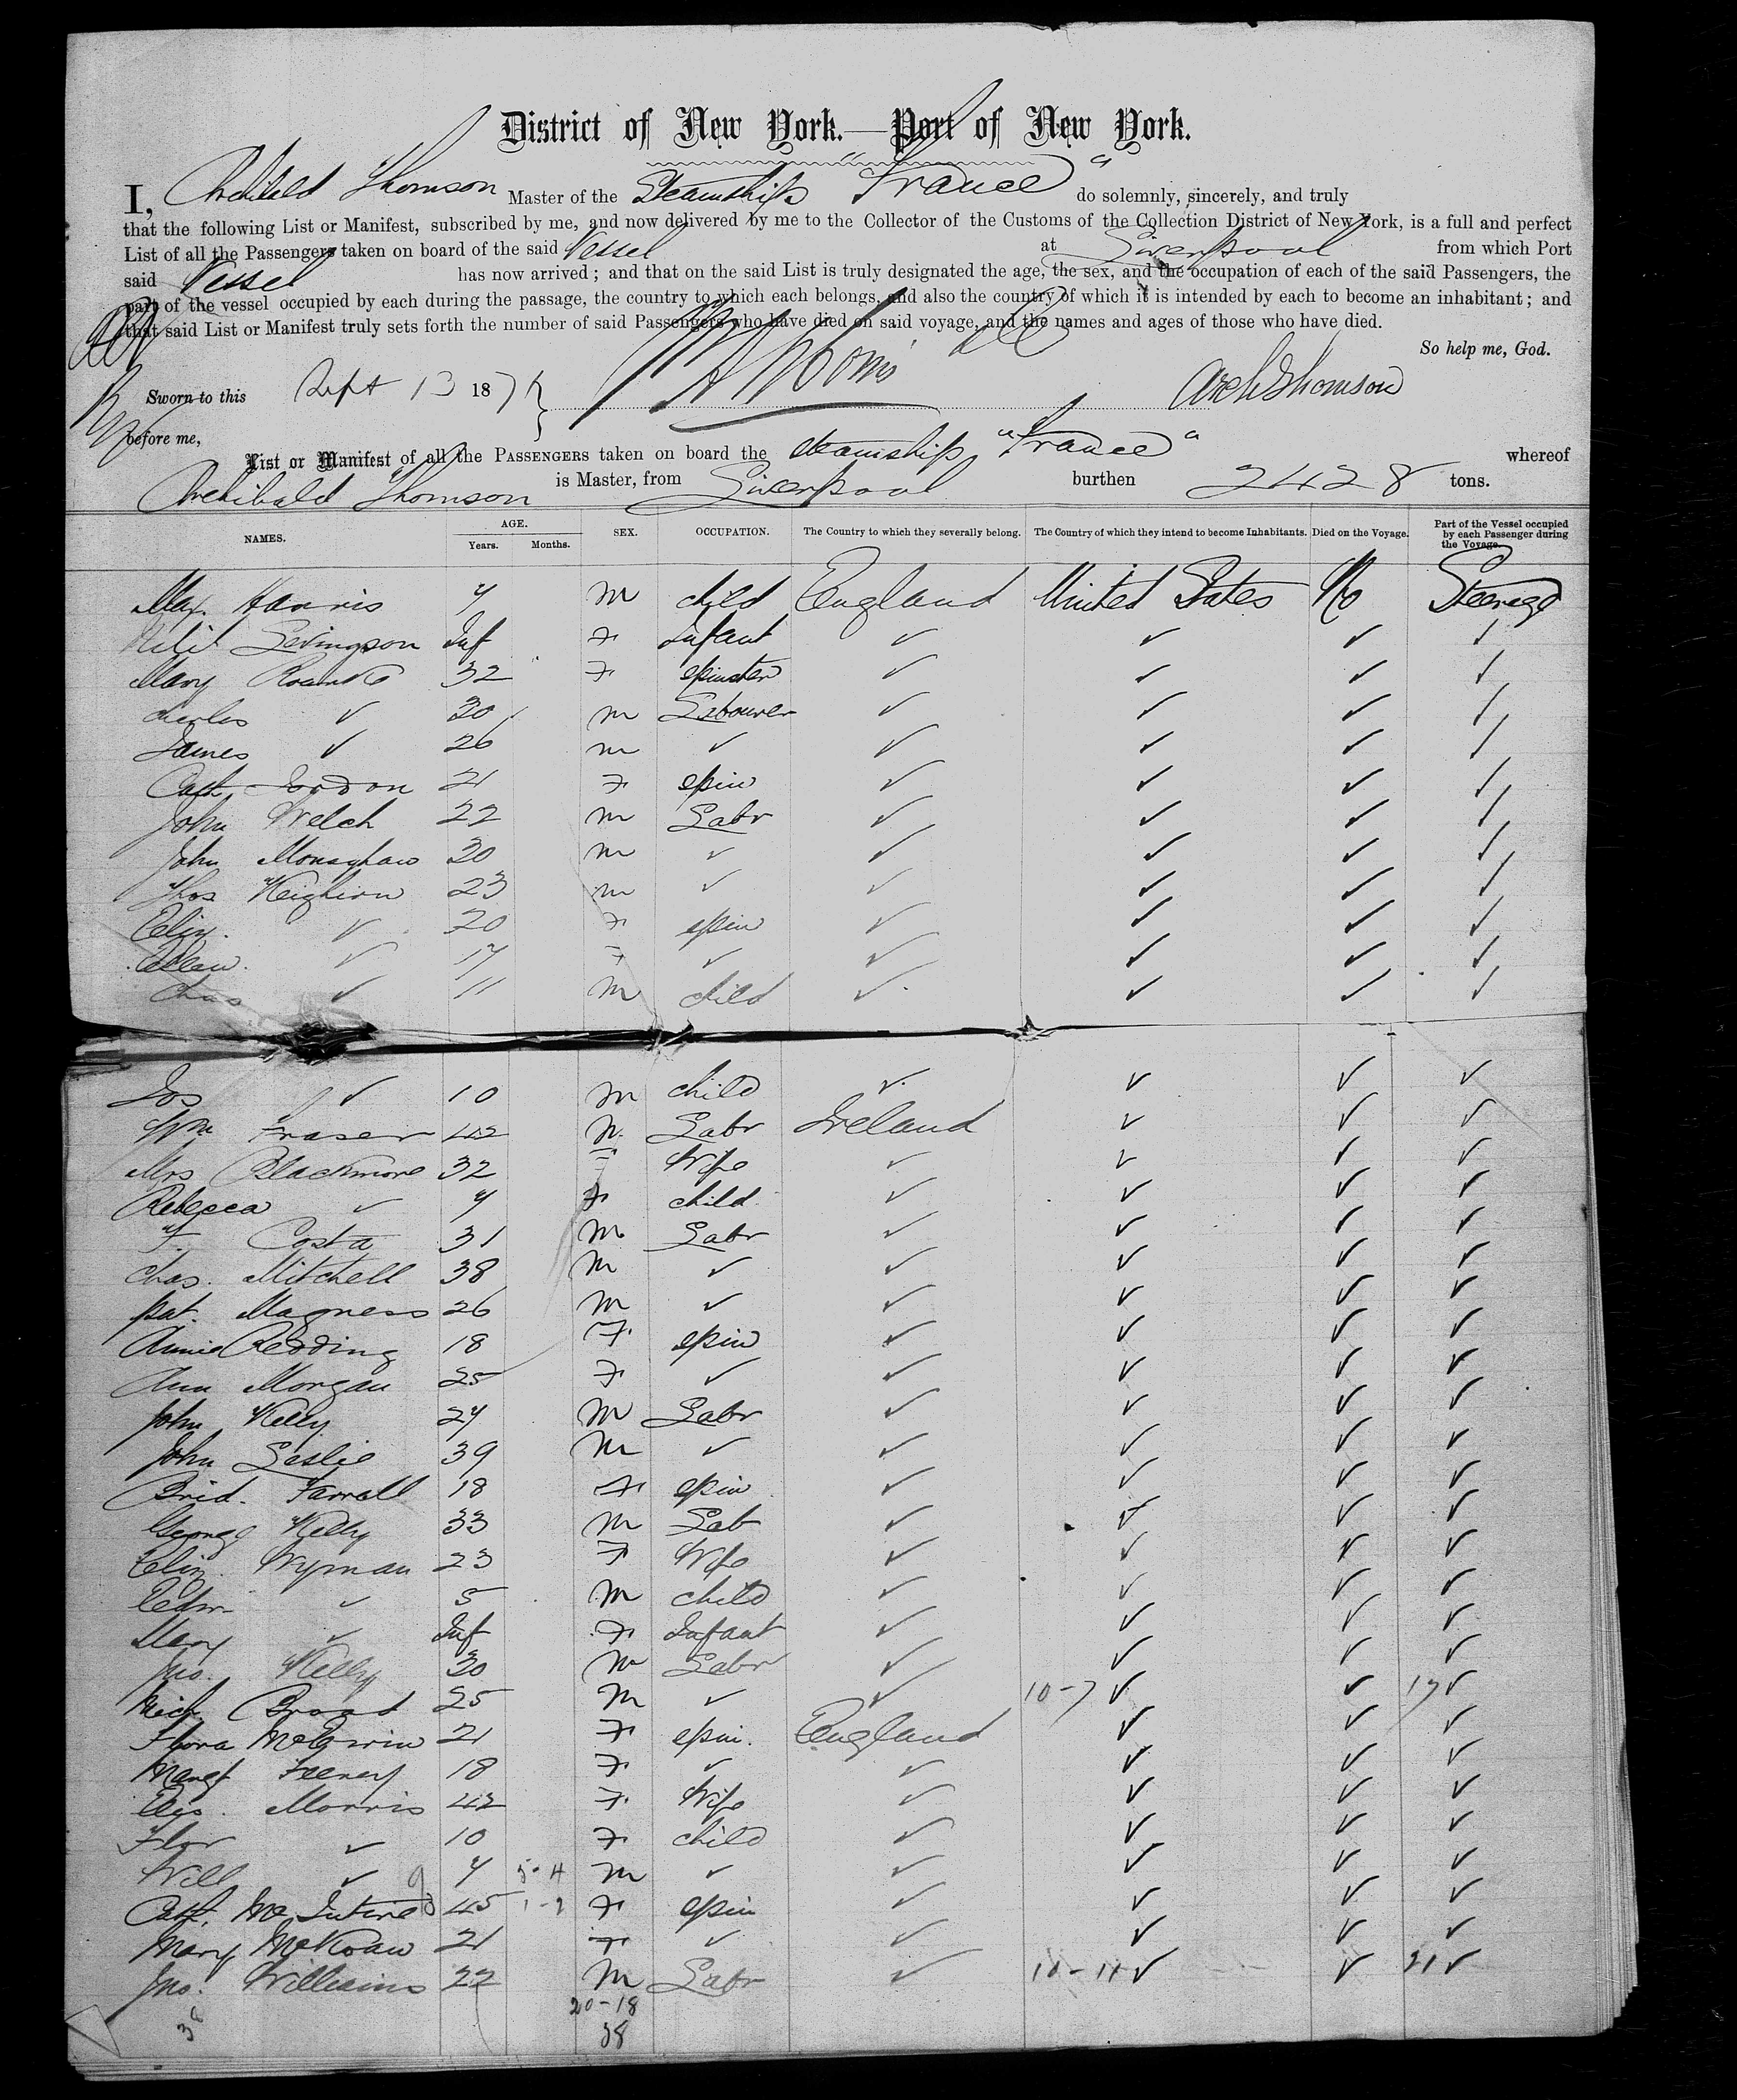 District of New York.—Port of New York.
I, Archibald Thomson Master of the Steamship "France" do solemnly, sincerely, and truly
that the following List or Manifest, subscribed by me, and now delivered by me to the Collector of the Customs of the Collection District of New York, is a full and perfect
List of all the Passengers taken on board of the said Vessel at Liverpool from which Port
said Vessel has now arrived; and that on the said List is truly designated the age, the sex, and the occupation of each of the said Passengers, the
part of the vessel occupied by each during the passage, the country to which each belongs, and also the country of which it is intended by each to become an inhabitant; and
that said List or Manifest truly sets forth the number of said Passengers who have died on said voyage, and the names and ages of those who have died.
So help me, God.
Sworn to this Sept 13 187 Arch Thomson
before me,
List or Manifest of all the PASSENGERS taken on board the steamship "France" whereof
Archibald Thomson is Master, from Liverpool burthen 2428 tons.
NAMES. AGE. Years. Months. SEX. OCCUPATION. The Country to which they severally belong. The Country of which they intend to become Inhabitants. Died on the Voyage. Part of the Vessel occupied by each Passenger during the Voyage.
Max. Harris 7 M child England United States No Steerage
Levingson Inf F Infant ✓ ✓ ✓ ✓
Mary 32 F spinster ✓ ✓ ✓ ✓
Charles ✓ 30 M Labourer ✓ ✓ ✓ ✓
James ✓ 26 M ✓ ✓ ✓ ✓ ✓
Cath Gordon 21 F spin ✓ ✓ ✓ ✓
John Welch 22 M Labr ✓ ✓ ✓ ✓
John Monaghan 30 M ✓ ✓ ✓ ✓ ✓
Thos Keighirn 23 M ✓ ✓ ✓ ✓ ✓
Eliz. ✓ 20 F spin ✓ ✓ ✓ ✓
Ellen ✓ 17 F ✓ ✓ ✓ ✓ ✓
Chas ✓ 11 M child ✓ ✓ ✓ ✓
Jos ✓ 10 M child ✓ ✓ ✓ ✓
Wm Fraser 42 M Labr Ireland ✓ ✓ ✓
Mrs Blackmore 32 F Wife ✓ ✓ ✓ ✓
Rebecca ✓ 7 F child ✓ ✓ ✓ ✓
T. Costa 31 M Labr ✓ ✓ ✓ ✓
Chas. Mitchell 38 M ✓ ✓ ✓ ✓ ✓
Pat. Magness 26 M ✓ ✓ ✓ ✓ ✓
Annie Redding 18 F spin ✓ ✓ ✓ ✓
Ann Morgan 25 F ✓ ✓ ✓ ✓ ✓
John Kelly 24 M Labr ✓ ✓ ✓ ✓
John Leslie 39 M ✓ ✓ ✓ ✓ ✓
Brid. Farrell 18 F spin ✓ ✓ ✓ ✓
George Kelly 33 M Lab ✓ ✓ ✓ ✓
Eliz. Wyman 23 F Wife ✓ ✓ ✓ ✓
Edw ✓ 5 M child ✓ ✓ ✓ ✓
Mary ✓ Inf F Infant ✓ ✓ ✓ ✓
Jno. Kelly 30 M Labr ✓ ✓ ✓ ✓
Mich. Broad 25 M ✓ ✓ 10-7 ✓ ✓ 17 ✓
Flora McGwin 21 F spin. England ✓ ✓ ✓
Margt Feeney 18 F ✓ ✓ ✓ ✓ ✓
Morris 42 F Wife ✓ ✓ ✓ ✓
Flor ✓ 10 F child ✓ ✓ ✓ ✓
Will ✓ 7 5-4 M ✓ ✓ ✓ ✓ ✓
Cath. McIntire 45 F spin ✓ ✓ ✓ ✓
Mary McKoan 21 F ✓ ✓ ✓ ✓ ✓
Jno. Williams 22 M Labr ✓ 10-11 ✓ ✓ 21 ✓
20-18
38
38